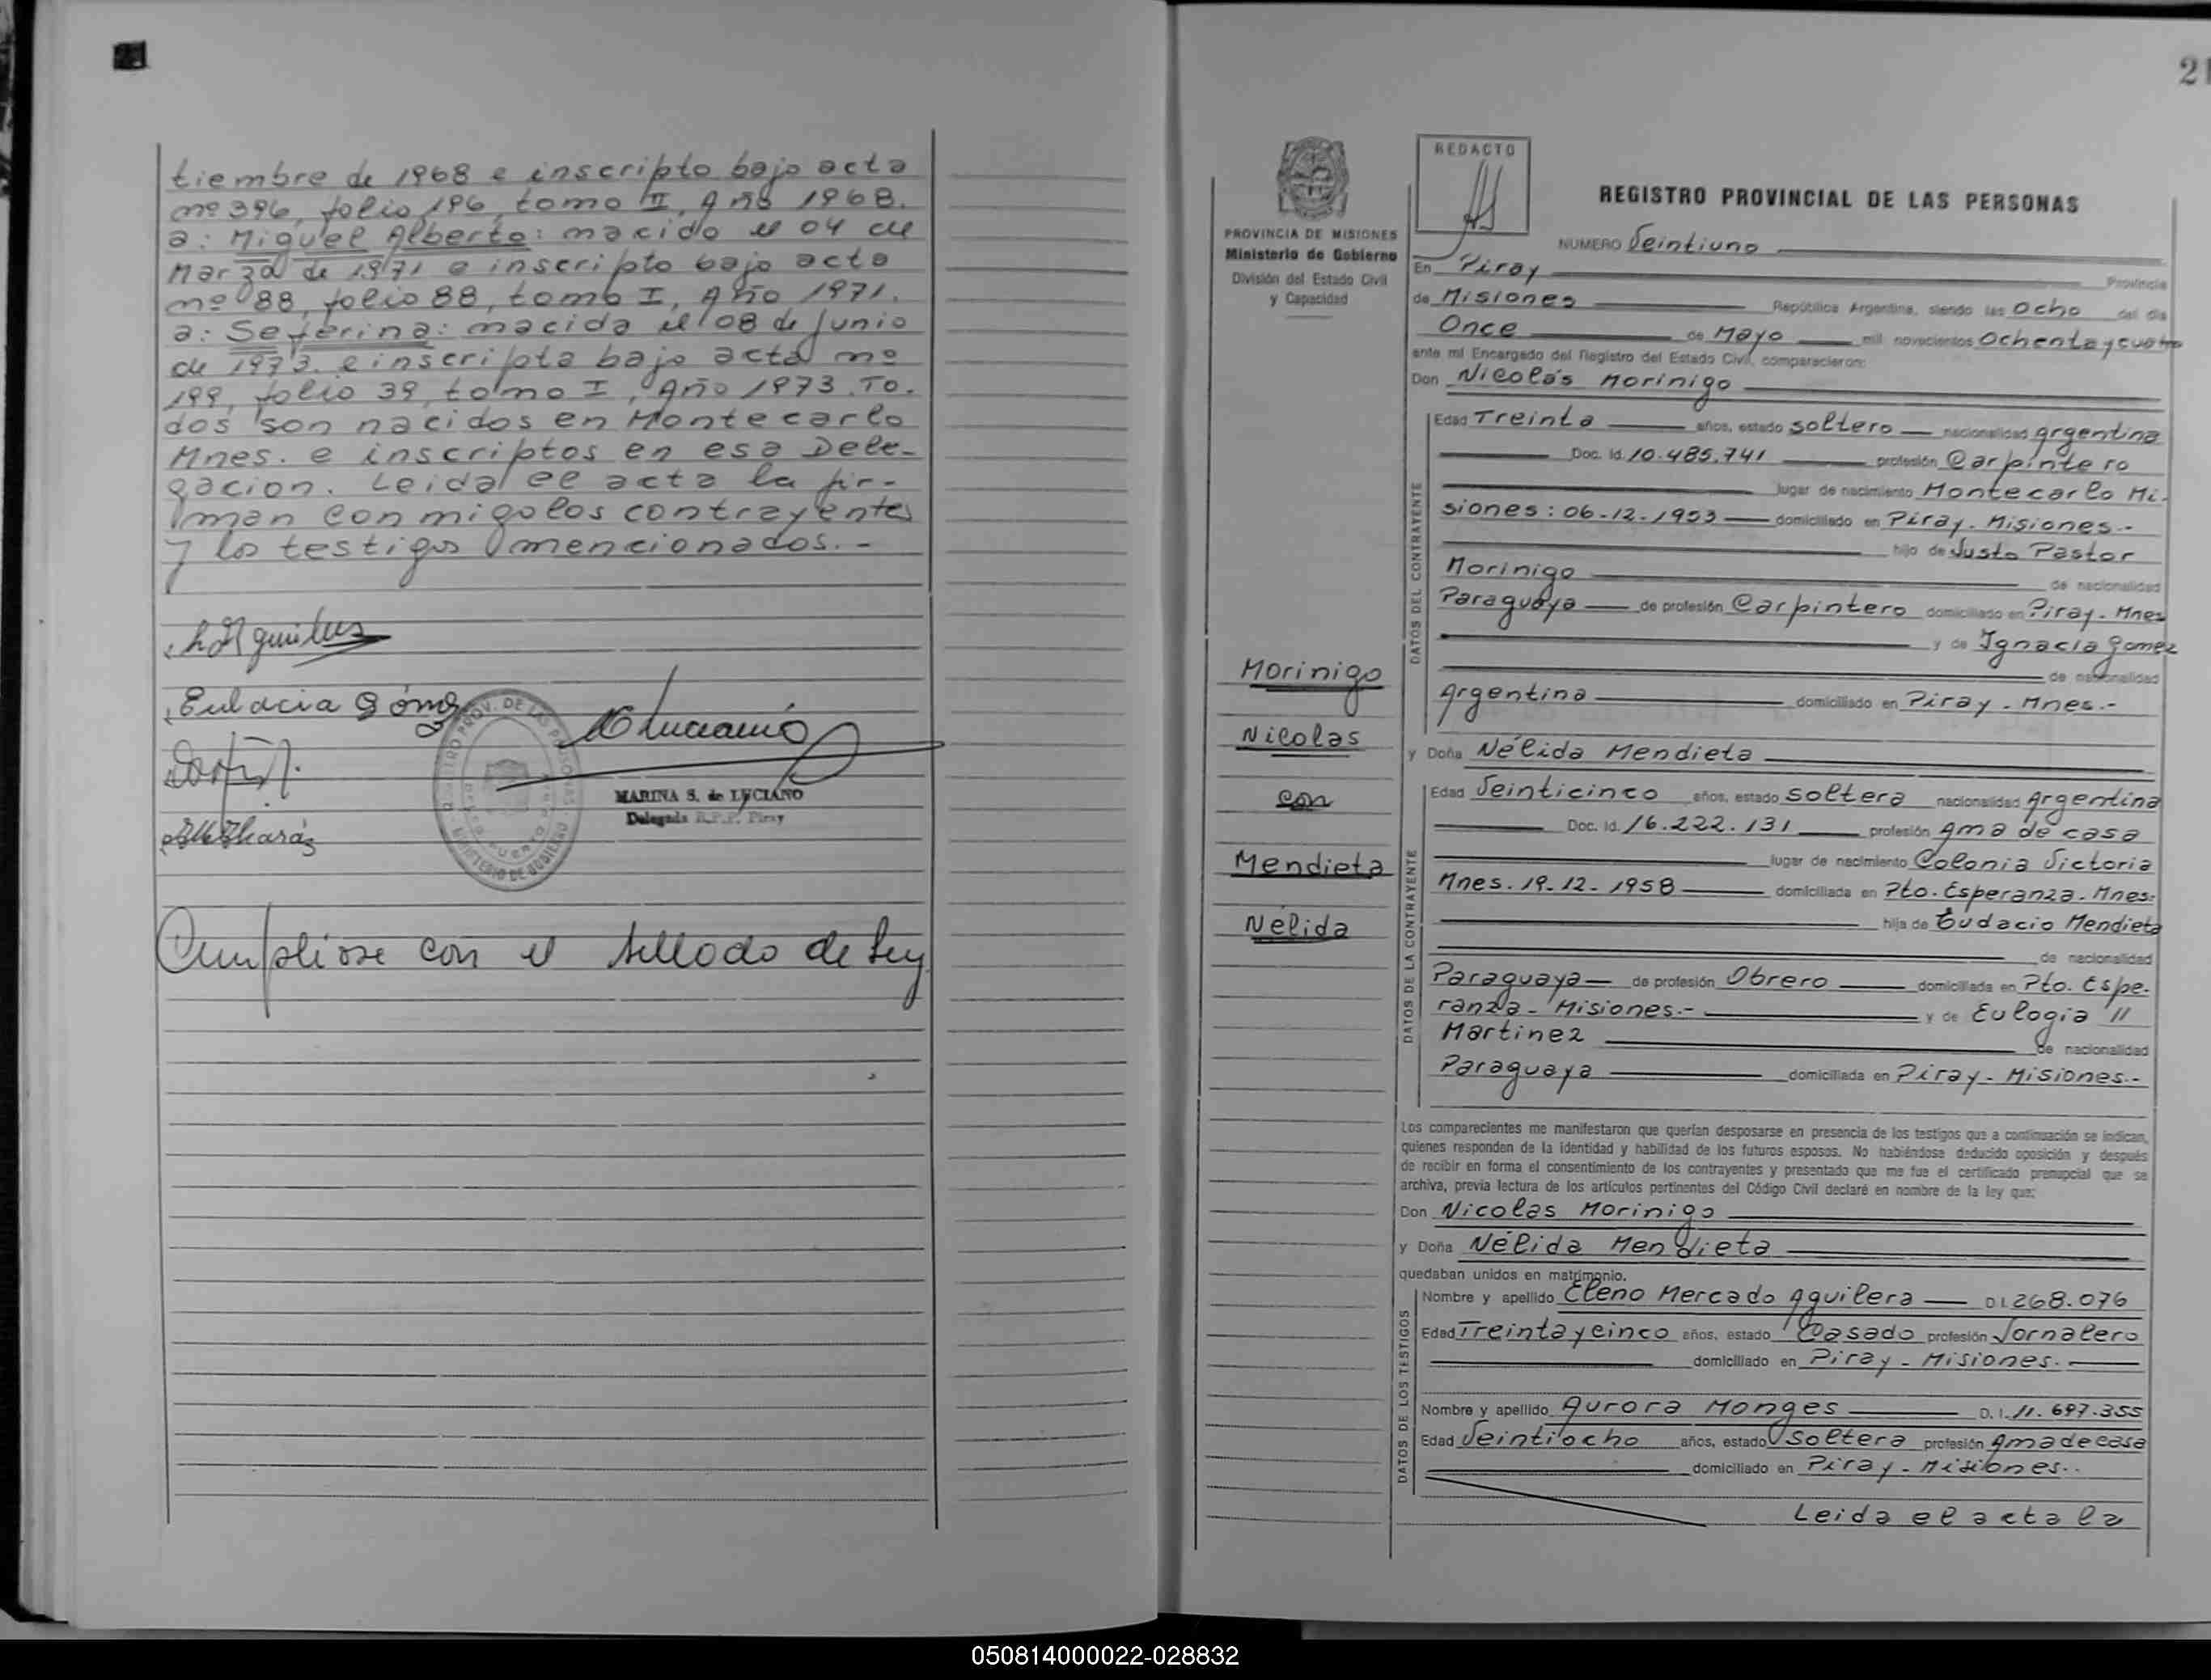 tiembre de 1968 e inscripto bajo acta
nº 396, folio 196, tomo II, Año 1968.
a: Miguel Alberto: nacido el 04 de
Marzo de 1971 e inscripto bajo acta
nº 88, folio 88, tomo I, Año 1971.
a: Seferina: nacida el 08 de Junio
de 1973. e inscripta bajo acta nº
199, folio 39, tomo I, Año 1973. To-
dos son nacidos en Montecarlo
Mnes. e inscriptos en esa Dele-
gacion. Leida el acta la fir-
man conmigo los contrayentes
y los testigos mencionados.-
Eulacia Góm
MARINA S. de LUCIANO
Delegada R.P.P. Piray
Cumpliose con el sellado de Ley
21
PROVINCIA DE MISIONES
Ministerio de Gobierno
División del Estado Civil
y Capacidad
Morinigo
Nicolas
con
Mendieta
Nélida
REDACTO
REGISTRO PROVINCIAL DE LAS PERSONAS
NUMERO Veintiuno
En Piray Provincia
de Misiones República Argentina, siendo las Ocho del día
Once de Mayo mil novecientos Ochenta y cuatro
ante mí Encargado del Registro del Estado Civil, comparecieron:
Don Nicolás Morinigo
DATOS DEL CONTRAYENTE
Edad Treinta años, estado soltero nacionalidad Argentina
Doc. Id. 10.485.741 profesión Carpintero
lugar de nacimiento Montecarlo Mi-
siones: 06-12-1953 domiciliado en Piray. Misiones.-
hijo de Justo Pastor
Morinigo de nacionalidad
Paraguaya de profesión Carpintero domiciliado en Piray. Mnes
y de Ignacia Gomez
de nacionalidad
Argentina domiciliado en Piray - Mnes.-
y Doña Nélida Mendieta
DATOS DE LA CONTRAYENTE
Edad Veinticinco años, estado soltera nacionalidad Argentina
Doc. Id. 16.222.131 profesión Ama de casa
lugar de nacimiento Colonia Victoria
Mnes. 19-12-1958 domiciliada en Pto. Esperanza. Mnes.
hija de Eudacio Mendieta
de nacionalidad
Paraguaya de profesión Obrero domiciliada en Pto. Espe-
ranza - Misiones.- y de Eulogia "
Martinez de nacionalidad
Paraguaya domiciliada en Piray - Misiones.-
Los comparecientes me manifestaron que querían desposarse en presencia de los testigos que a continuación se indican,
quienes responden de la identidad y habilidad de los futuros esposos. No habiéndose deducido oposición y después
de recibir en forma el consentimiento de los contrayentes y presentado que me fue el certificado prenupcial que se
archiva, previa lectura de los artículos pertinentes del Código Civil declaré en nombre de la ley que:
Don Nicolas Morinigo
y Doña Nélida Mendieta
quedaban unidos en matrimonio.
DATOS DE LOS TESTIGOS
Nombre y apellido Eleno Mercado Aguilera D.I. 268.076
Edad Treinta y cinco años, estado Casado profesión Jornalero
domiciliado en Piray - Misiones.
Nombre y apellido Aurora Monges D.I. 11.697.355
Edad Veintiocho años, estado Soltera profesión Ama de casa
domiciliado en Piray - Misiones..
Leida el acta la
050814000022-028832